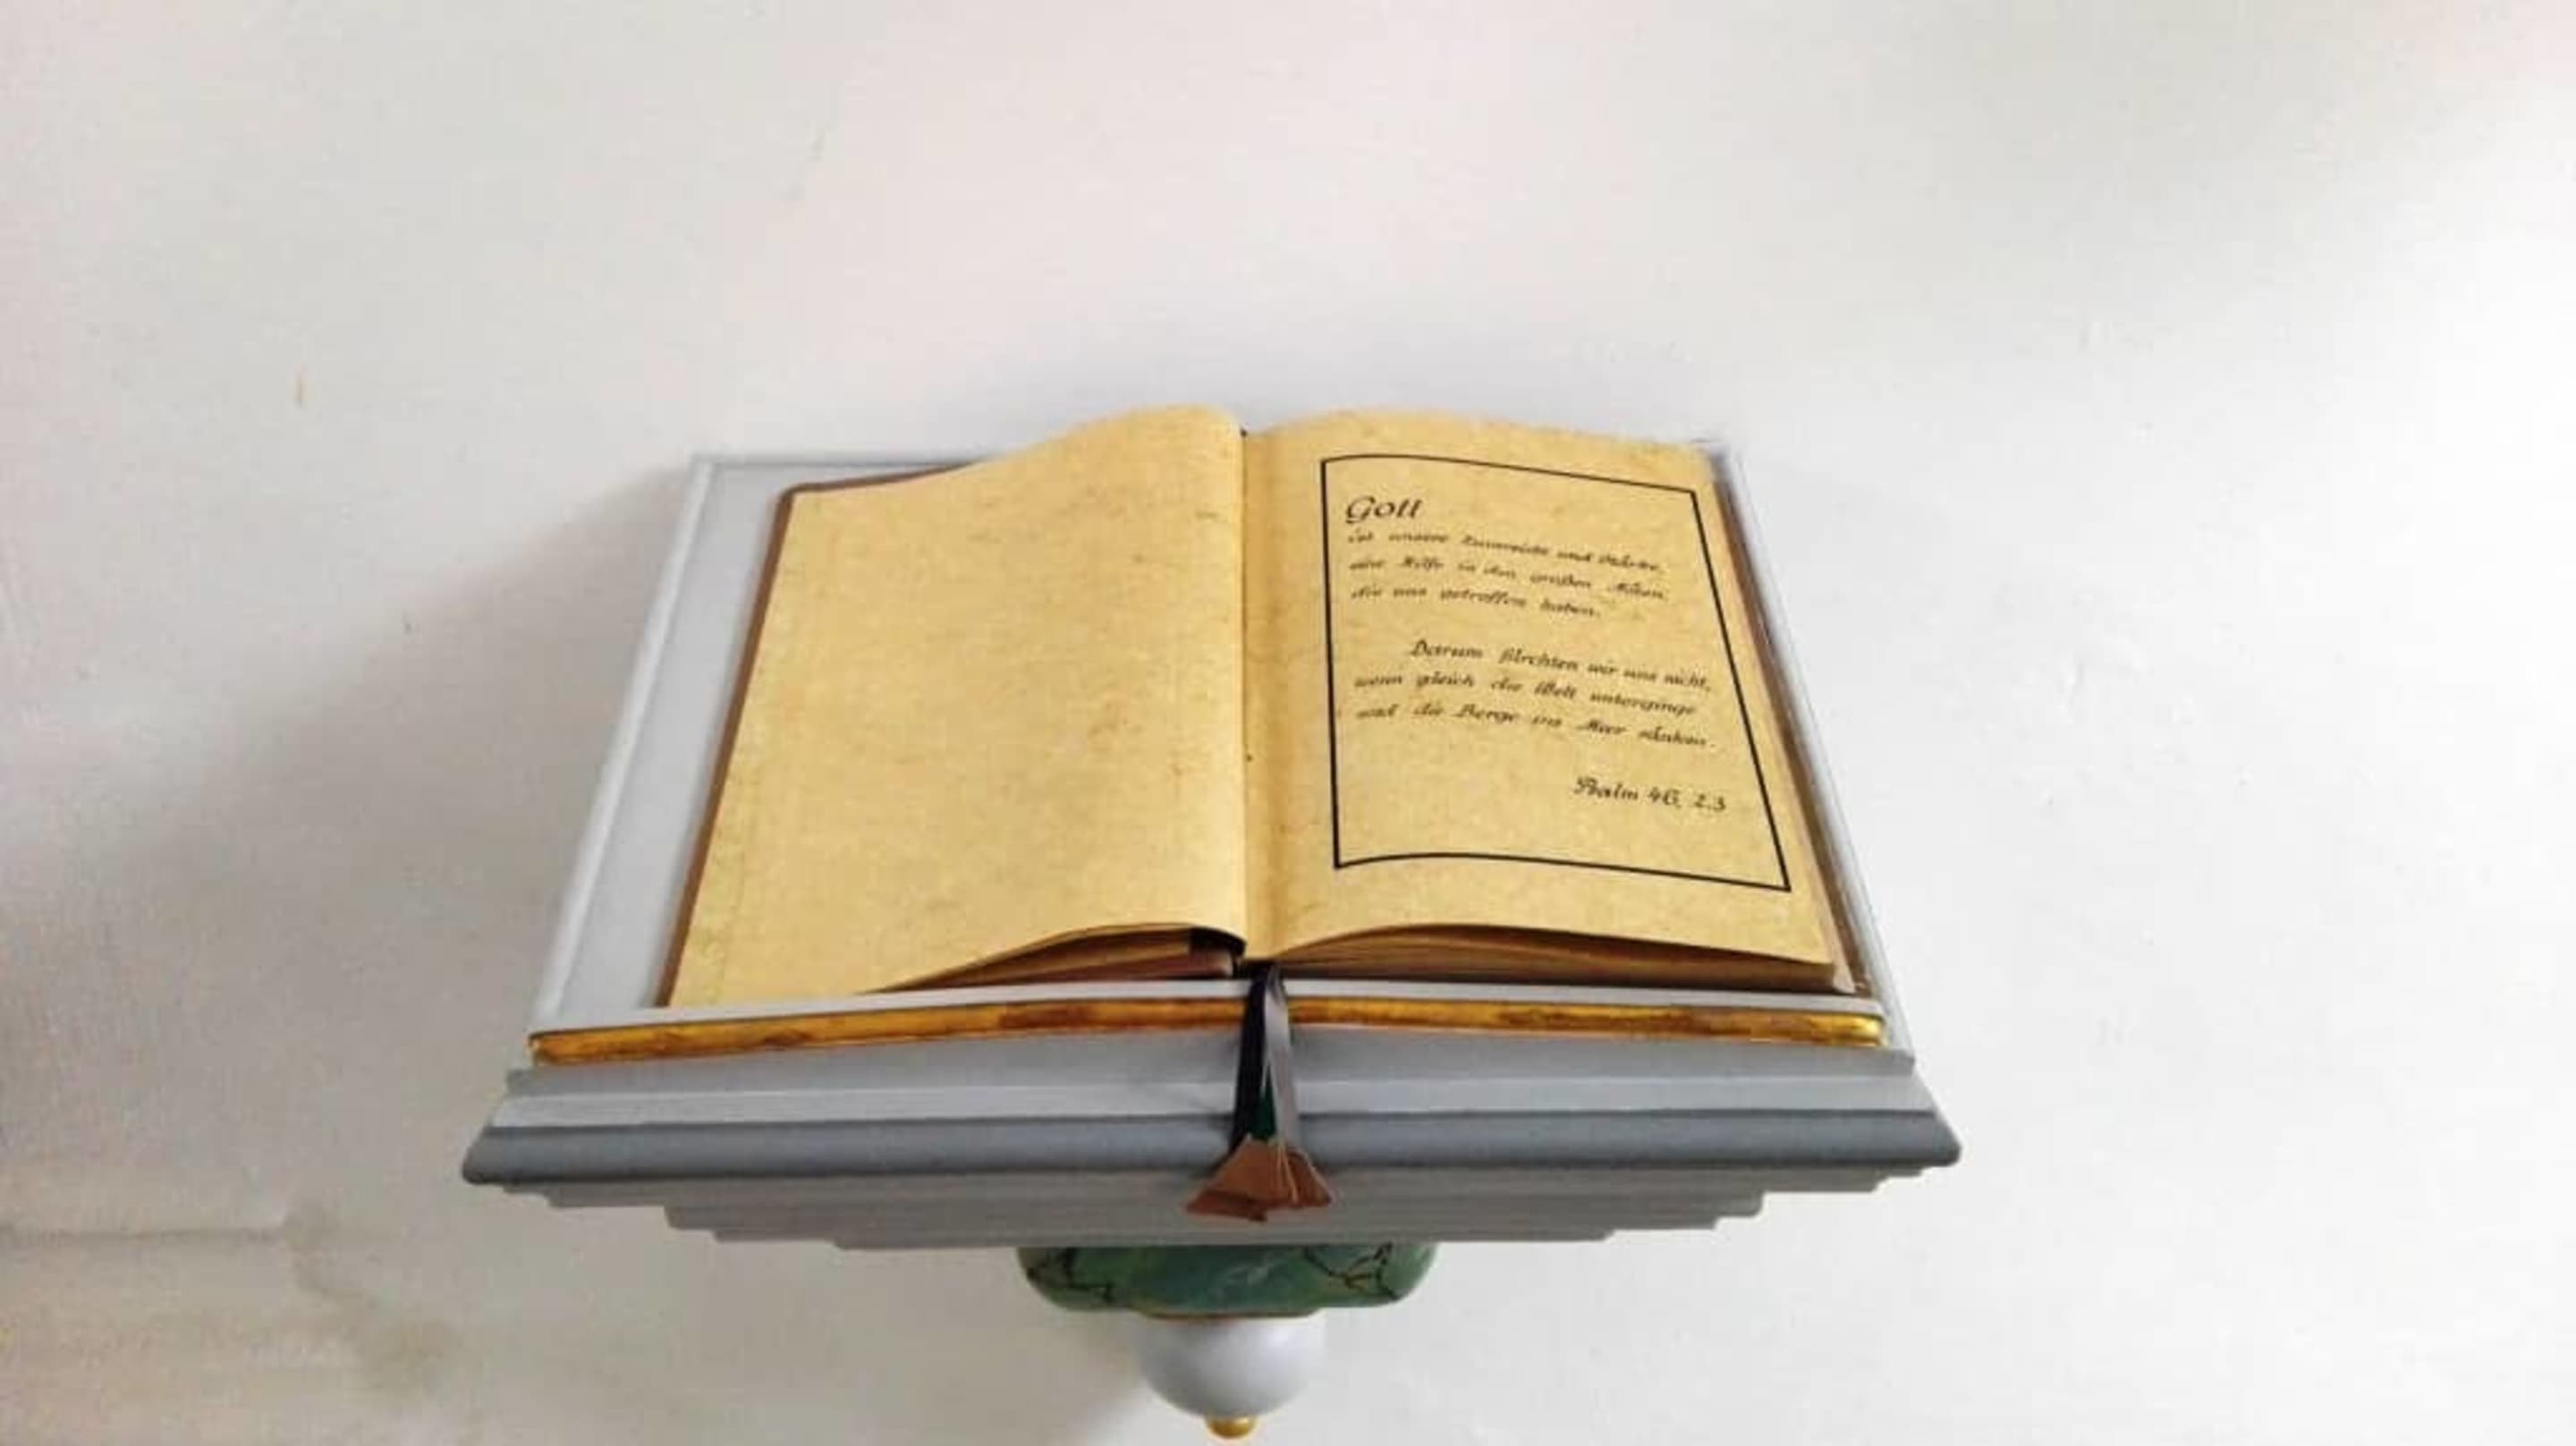 Gott
ist unsere Zuversicht und Stärke,
eine Hilfe in den großen Nöten,
die uns getroffen haben.
Darum fürchten wir uns nicht,
wenn gleich die Welt unterginge
und die Berge ins Meer sänken.
Psalm 46, 2.3